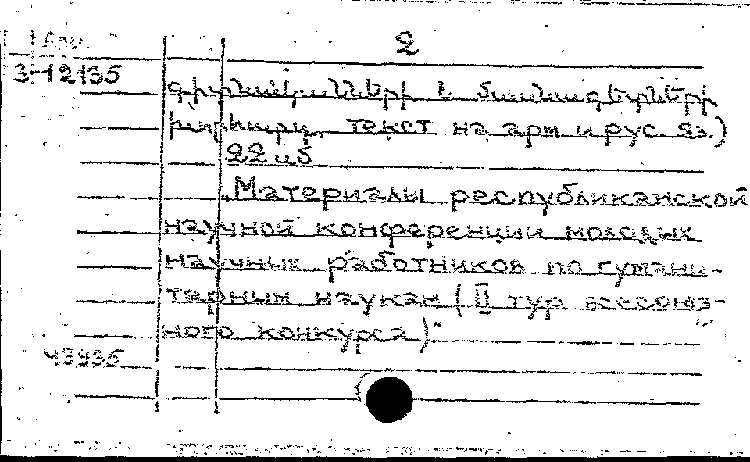 2
3-12135
գիտնականների և մասնագետների
խորհուրդ. текст на арм и рус. яз.)
22 սմ
"Материалы республиканской
научной конференции молодых
научных работников по гумани-
тарным наукам (II тур всесоюз-
ного конкурса)"
43936